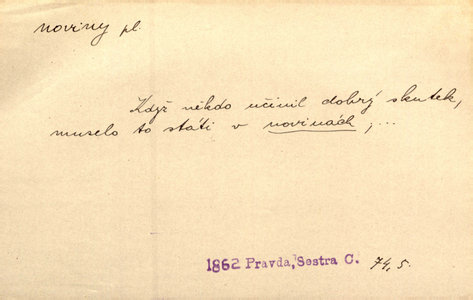 noviny pl.
Když někdo učinil dobrý skutek,
muselo to státi v novinách, ...
1862 Pravda, Sestra C. 74, 5.